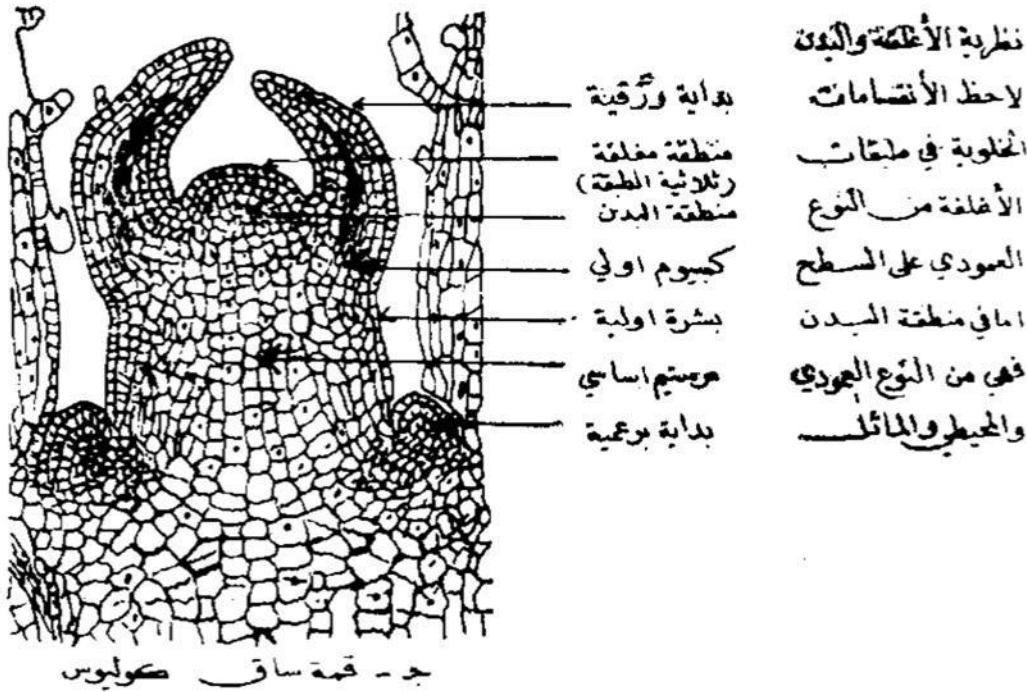 نظرية الأغلفة والبدن
لاحظ الأنقسامات
الخلوية في طبقات
الأغلفة من النوع
العمودي على السطح
اما في منطقة البدن
فهي من النوع العمودي
والمحيطي والمائل
بداية ورقية
منطقة مغلفة
(ثلاثية الطبقة)
منطقة البدن
كمبيوم اولي
بشرة اولية
مرستيم اساسي
بداية برعمية
جـ - قمة ساق كوليوس